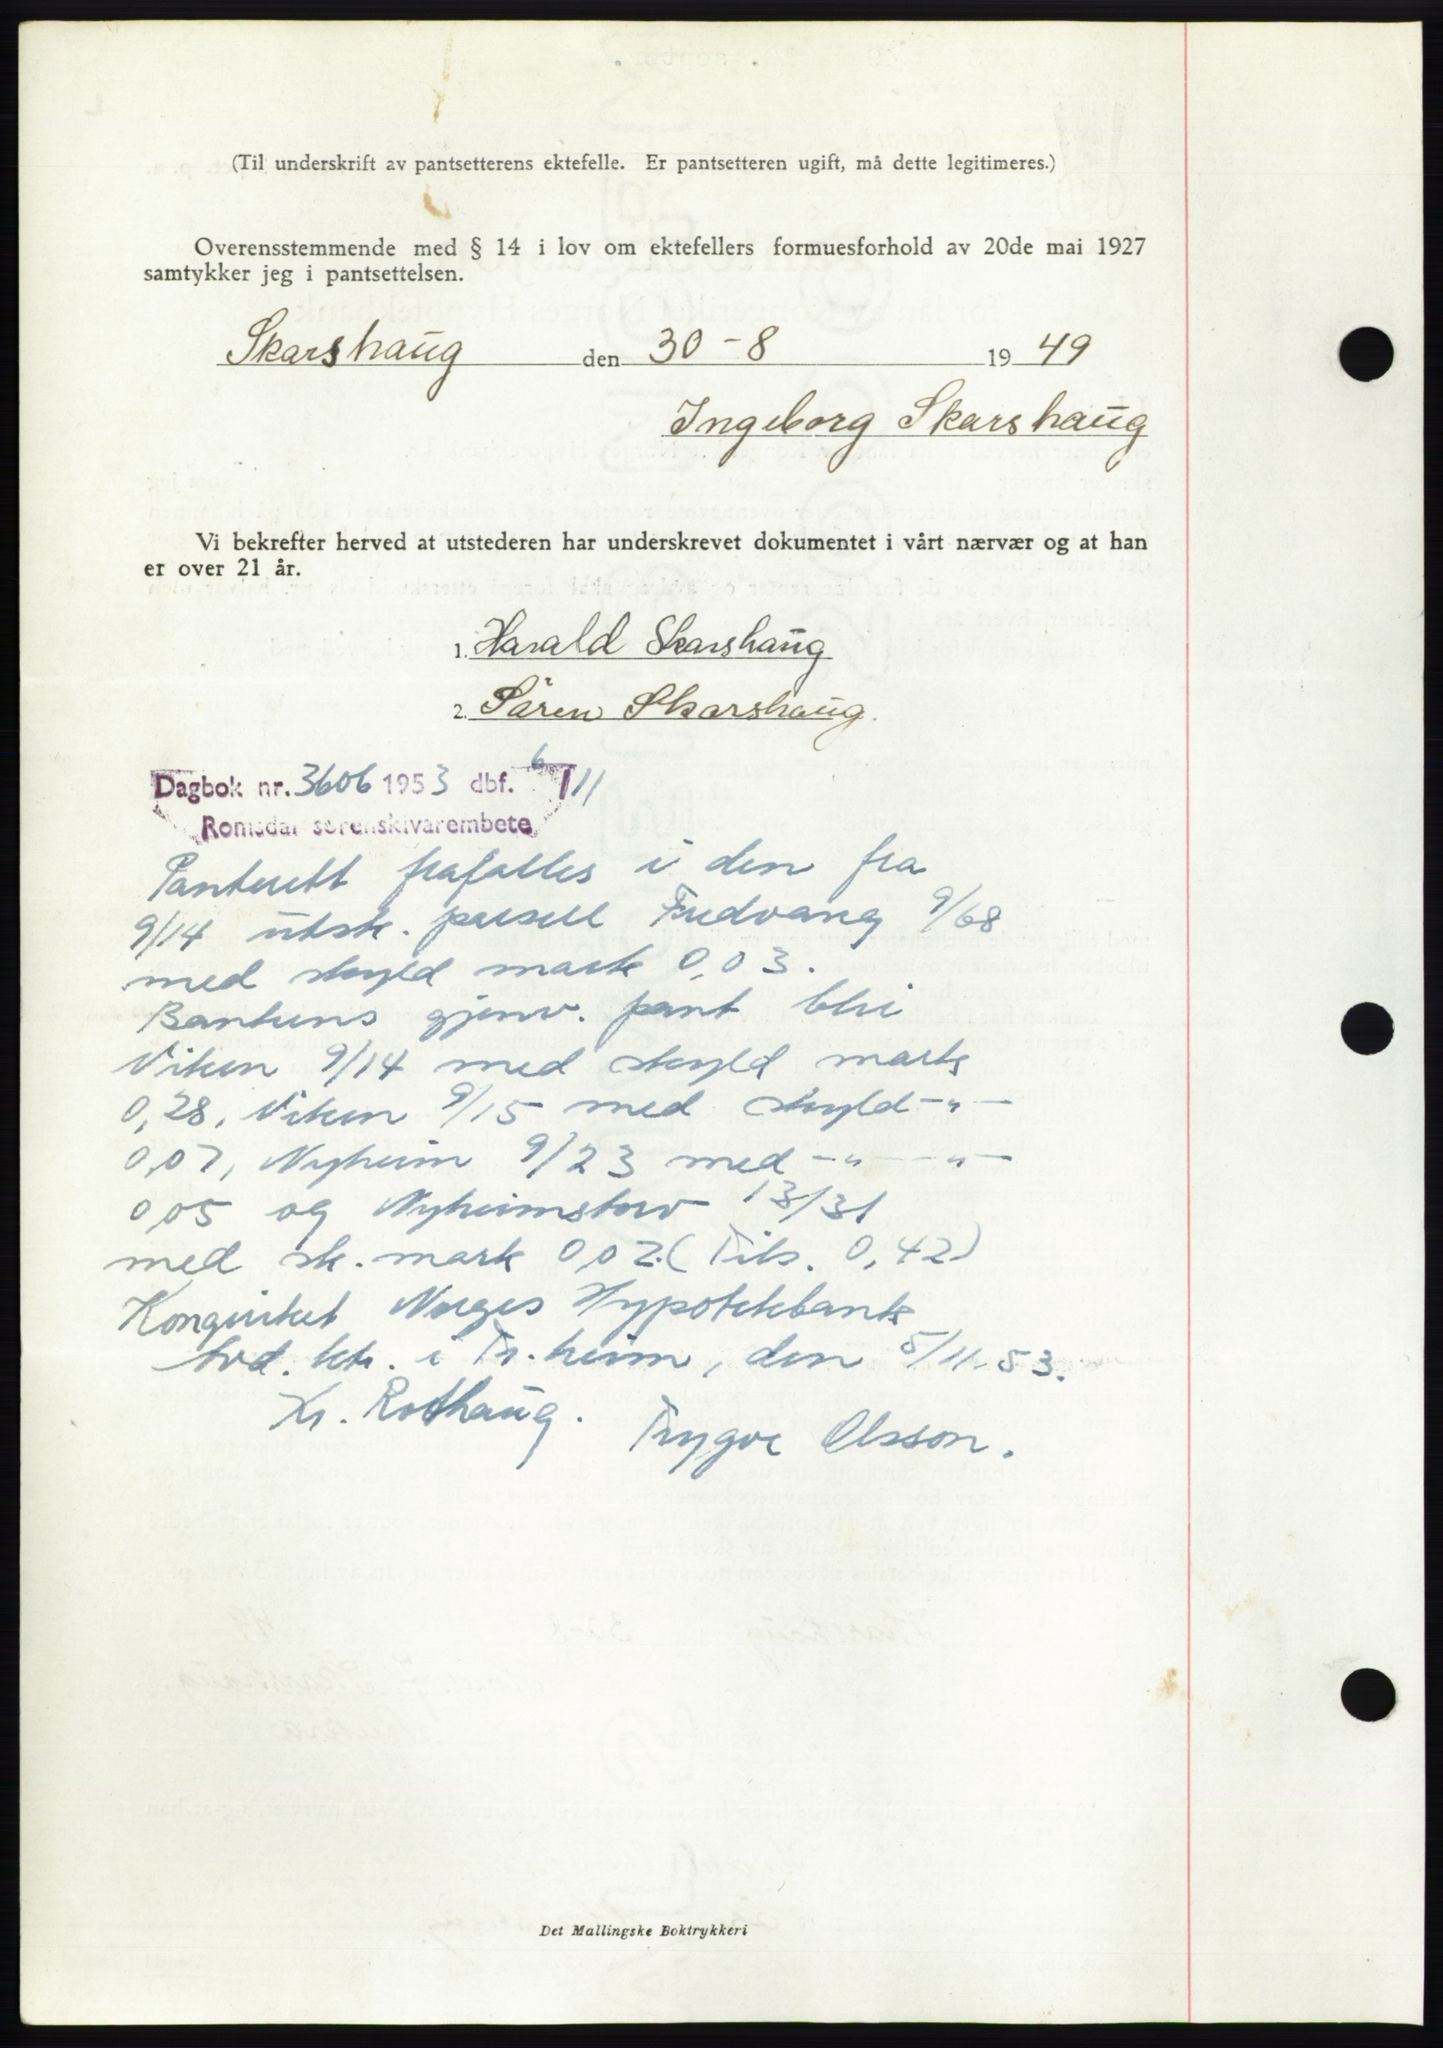 (Til underskrift av pantsetterens ektefelle. Er pantsetteren ugift, må dette legitimeres.)
Overensstemmende med § 14 i lov om ektefellers formuesforhold av 20de mai 1927
samtykker jeg i pantsettelsen.
Skarshaug den 30-8 1949
Ingeborg Skarshaug
Vi bekrefter herved at utstederen har underskrevet dokumentet i vårt nærvær og at han
er over 21 år.
1. Harald Skarshaug
2. Sören Skarshaug.
Dagbok nr. 3606 1953 dbf. 6/11
Romsdal sorenskrivarembete
Panterett frafalles i den fra
9/14 utsk. parsell Fredvang 9/68
med skyld mark 0,03.
Bankens gjenv. pant blir
Viken 9/14 med skyld mark
0,28, Viken 9/15 med skyld -"-
0,07, Nyheim 9/23 med -"- -"-
0,05 og Nyheimstorv 13/31
med sk. mark 0,02. (Tils. 0,42)
Kongeriket Norges Hypotekbank
Avd. ktr. i Tr.heim, den 5/11-53.
Kr. Rothaug. Trygve Olsson.
Det Mallingske Boktrykkeri